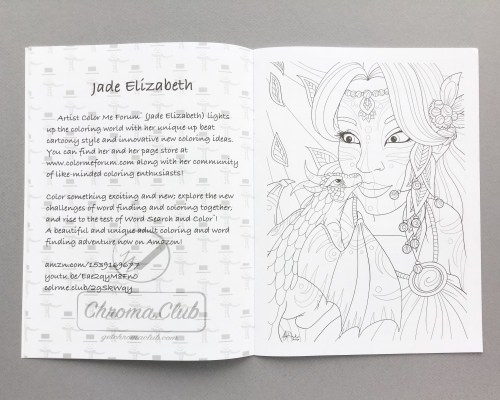 Jade Elizabeth
Artist Color Me Forum (Jade Elizabeth) lights
up the coloring world with her unique up beat
cartoony style and innovative new coloring ideas.
You can find her and her page store at
www.colormeforum.com along with her community
of like-minded coloring enthusiasts!
Color something exciting and new; explore the new
challenges of word finding and coloring together,
and rise to the test of Word Search and Color!
A beautiful and unique adult coloring and word
finding adventure now on Amazon!
youtu.be/
colrme.club/
Chroma.Club
getchromaclub.com